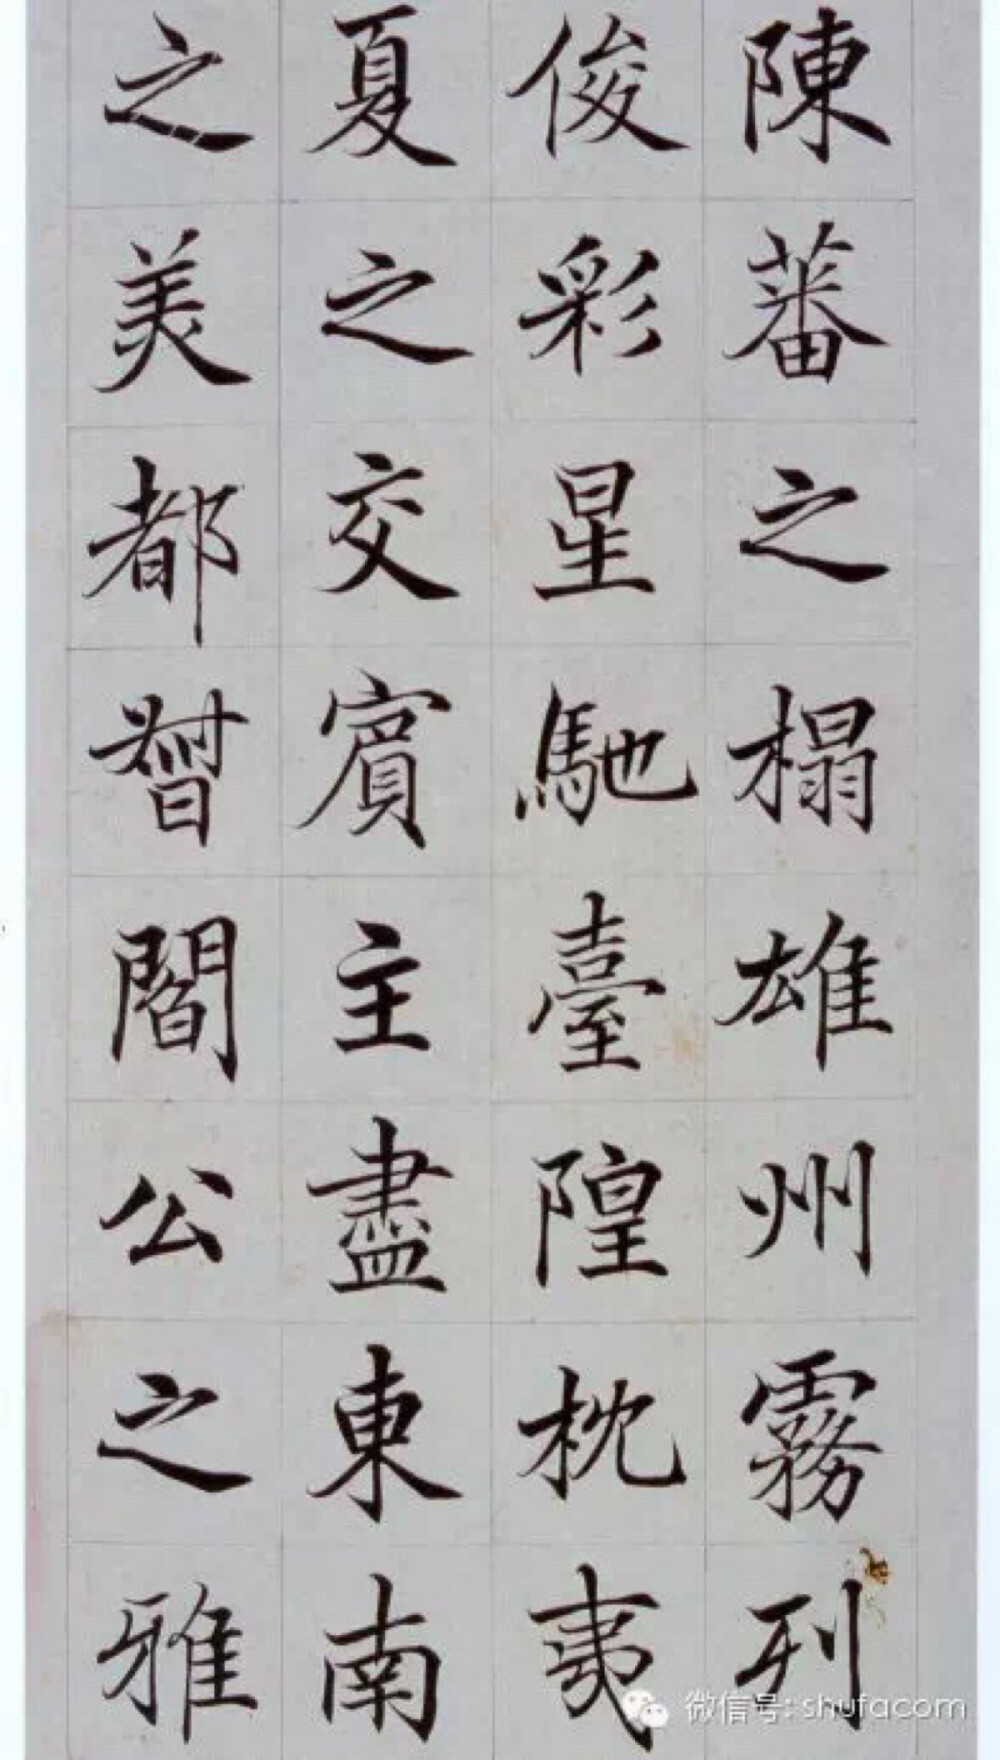 陳蕃之榻雄州霧列
俊彩星馳臺隍枕夷
夏之交賓主盡東南
之美都督閻公之雅
微信号: shufacom